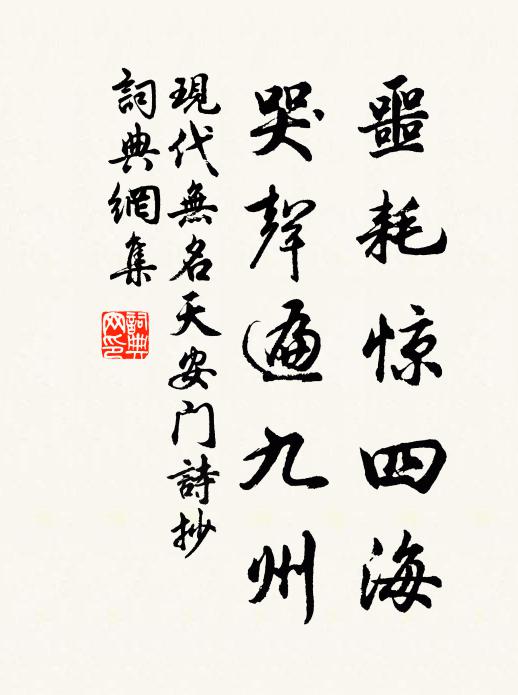 噩耗惊四海
哭聲遍九州
現代無名天安门詩抄
詞典網集
詞典
网印